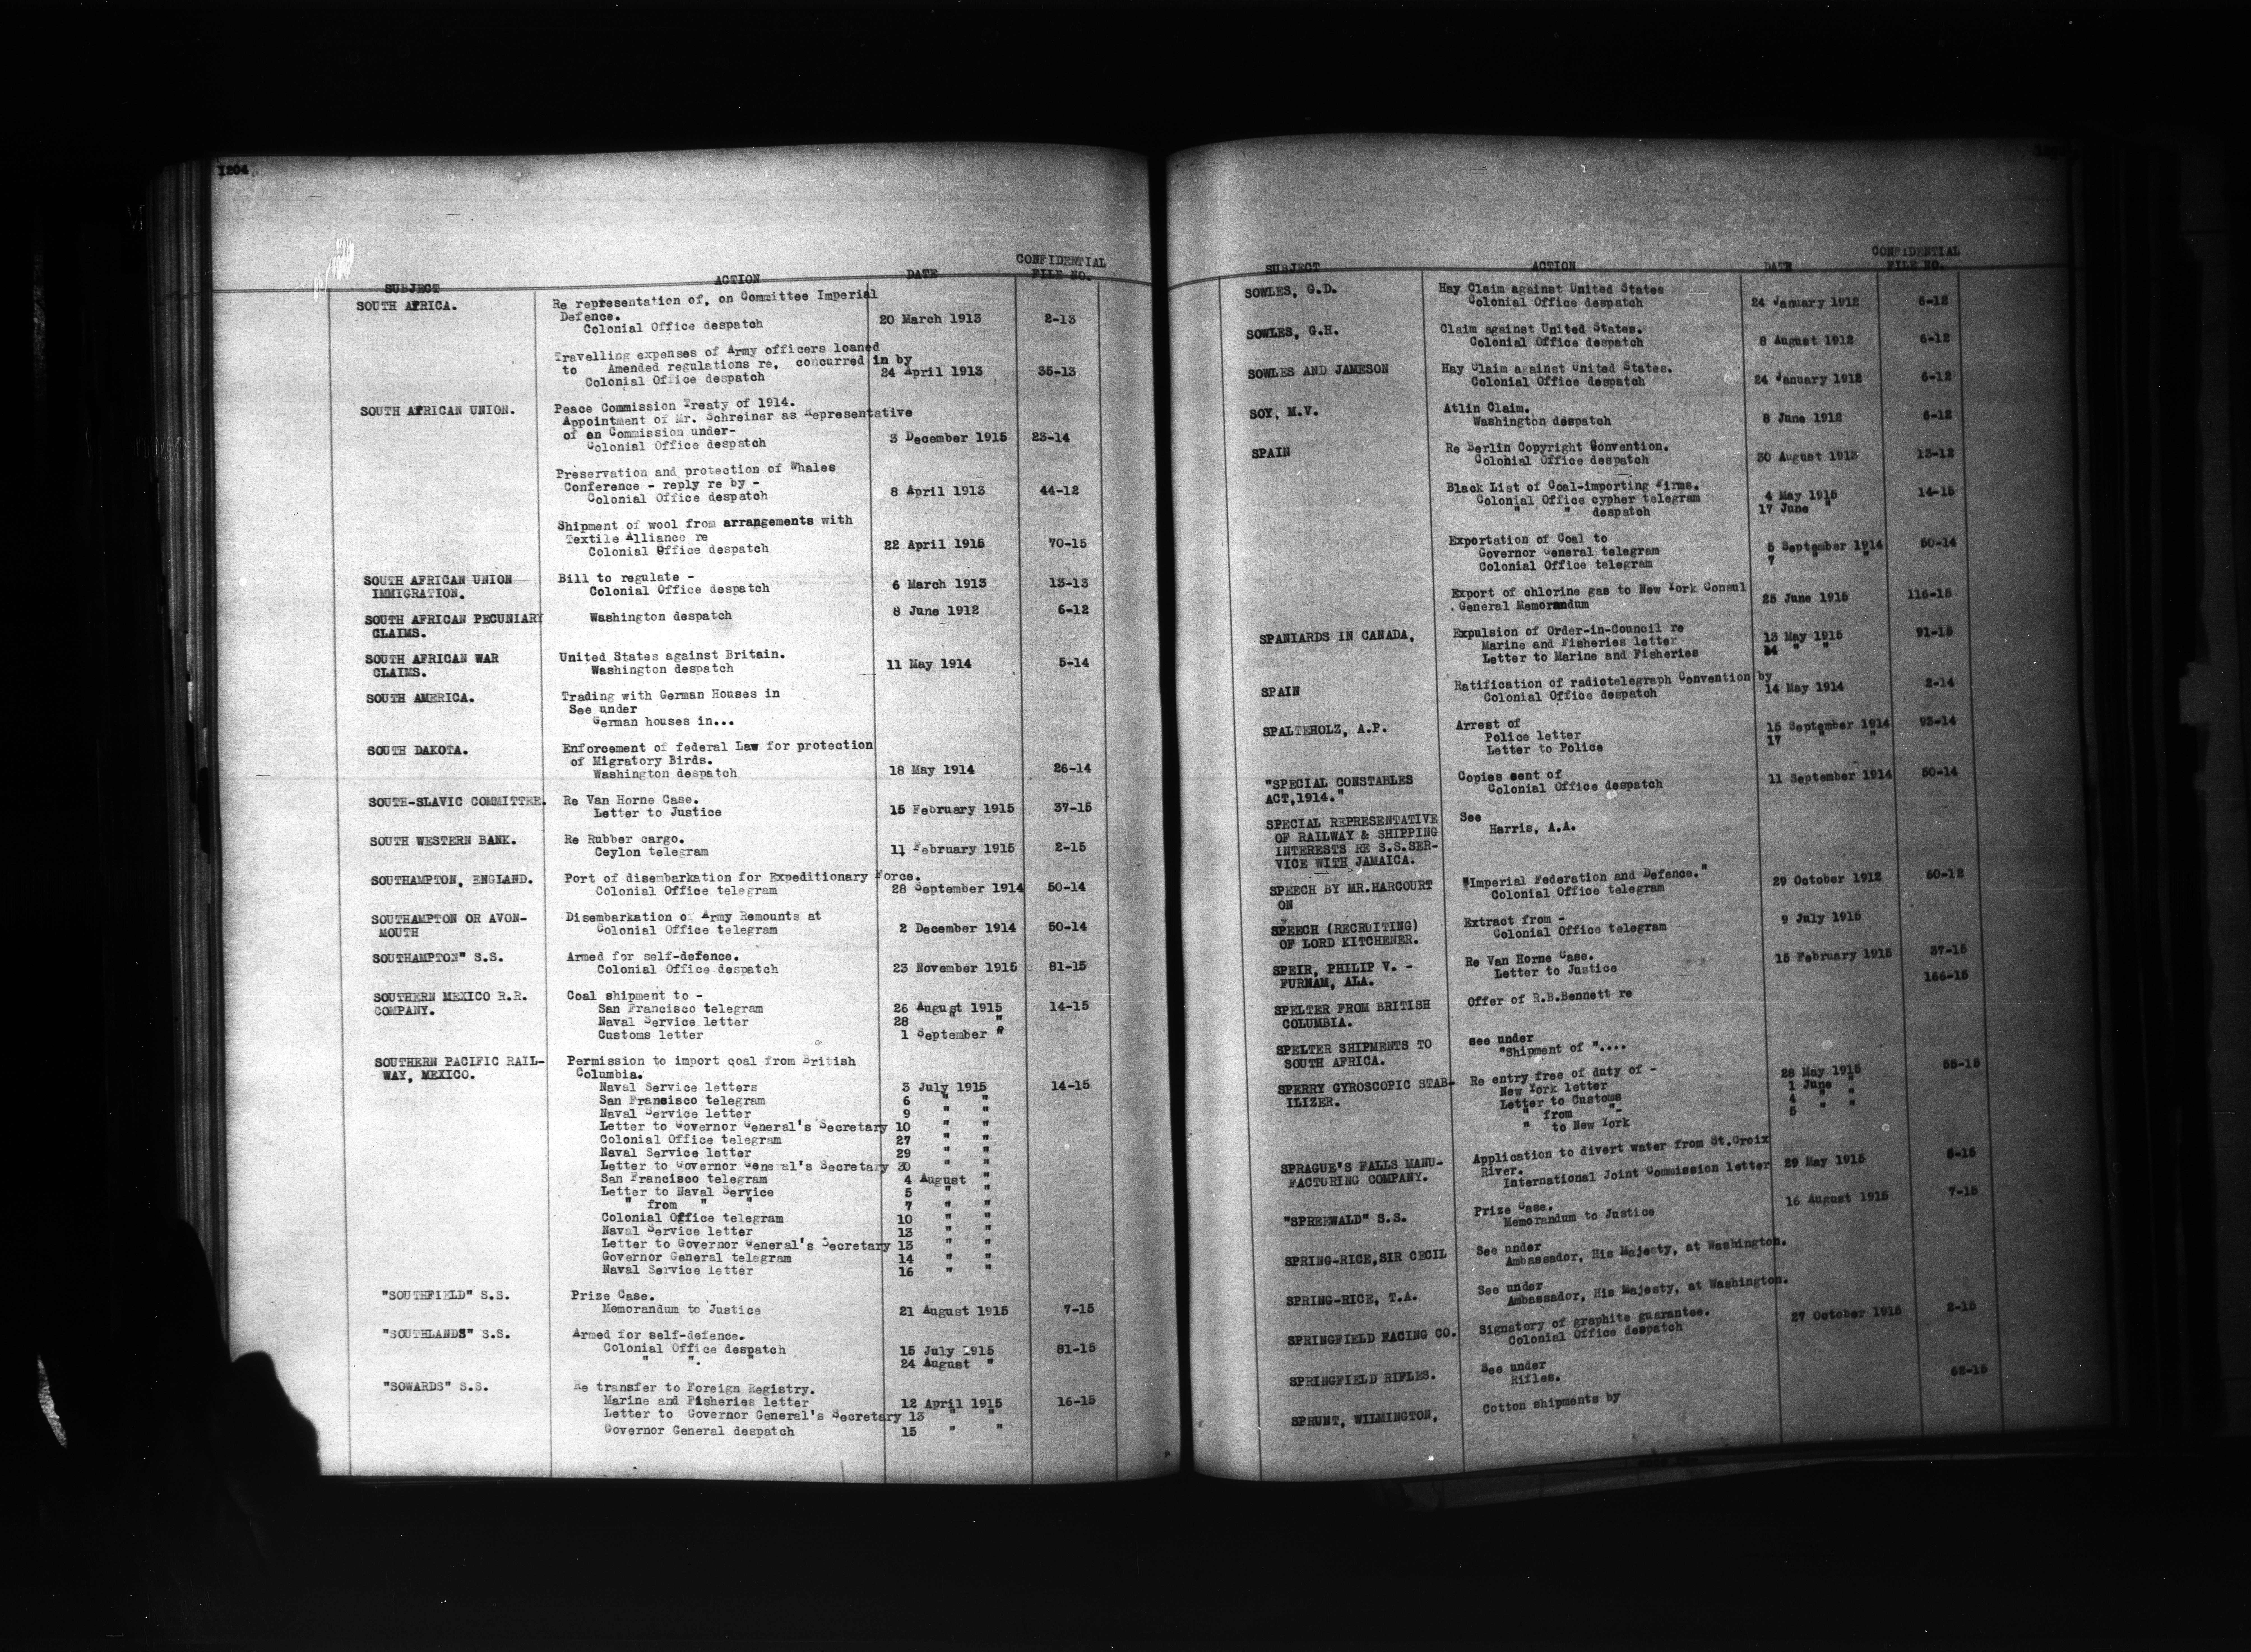 1204
SUBJECT ACTION DATE CONFIDENTIAL FILE NO.
SOUTH AFRICA. Re representation of, on Committee Imperial
Defence.
Colonial Office despatch 20 March 1913 2-13
Travelling expenses of Army officers loaned
to Amended regulations re, concurred in by
Colonial Office despatch 24 April 1913 35-13
SOUTH AFRICAN UNION. Peace Commission Treaty of 1914.
Appointment of Mr. Schreiner as Representative
of an Commission under-
Colonial Office despatch 3 December 1915 23-14
Preservation and protection of Whales
Conference - reply re by -
Colonial Office despatch 8 April 1913 44-12
Shipment of wool from arrangements with
Textile Alliance re
Colonial Office despatch 22 April 1915 70-15
SOUTH AFRICAN UNION Bill to regulate -
IMMIGRATION. Colonial Office despatch 6 March 1913 13-13
SOUTH AFRICAN PECUNIARY Washington despatch 8 June 1912 6-12
CLAIMS.
SOUTH AFRICAN WAR United States against Britain.
CLAIMS. Washington despatch 11 May 1914 5-14
SOUTH AMERICA. Trading with German Houses in
See under
German houses in...
SOUTH DAKOTA. Enforcement of federal Law for protection
of Migratory Birds.
Washington despatch 18 May 1914 26-14
SOUTH-SLAVIC COMMITTEE. Re Van Horne Case.
Letter to Justice 15 February 1915 37-15
SOUTH WESTERN BANK. Re Rubber cargo.
Ceylon telegram 11 February 1915 2-15
SOUTHAMPTON, ENGLAND. Port of disembarkation for Expeditionary Force.
Colonial Office telegram 28 September 1914 50-14
SOUTHAMPTON OR AVON- Disembarkation of Army Remounts at
MOUTH Colonial Office telegram 2 December 1914 50-14
SOUTHAMPTON" S.S. Armed for self-defence.
Colonial Office despatch 23 November 1915 81-15
SOUTHERN MEXICO R.R. Coal shipment to -
COMPANY. San Francisco telegram 26 August 1915 14-15
Naval Service letter 28 "
Customs letter 1 September "
SOUTHERN PACIFIC RAIL- Permission to import coal from British
WAY, MEXICO. Columbia.
Naval Service letters 3 July 1915 14-15
San Francisco telegram 6 " "
Naval Service letter 9 " "
Letter to Governor General's Secretary 10 " "
Colonial Office telegram 27 " "
Naval Service letter 29 " "
Letter to Governor General's Secretary 30 " "
San Francisco telegram 4 August "
Letter to Naval Service 5 " "
" from " " 7 " "
Colonial Office telegram 10 " "
Naval Service letter 13 " "
Letter to Governor General's Secretary 13 " "
Governor General telegram 14 " "
Naval Service letter 16 " "
"SOUTHFIELD" S.S. Prize Case.
Memorandum to Justice 21 August 1915 7-15
"SOUTHLANDS" S.S. Armed for self-defence.
Colonial Office despatch 15 July 1915 81-15
" ". " 24 August "
"SOWARDS" S.S. Re transfer to Foreign Registry.
Marine and Fisheries letter 12 April 1915 16-15
Letter to Governor General's Secretary 13 " "
Governor General despatch 15 " "
SUBJECT ACTION DATE CONFIDENTIAL FILE NO.
SOWLES, G.D. Hay Claim against United States
Colonial Office despatch 24 January 1912 6-12
SOWLES, G.H. Claim against United States.
Colonial Office despatch 8 August 1912 6-12
SOWLES AND JAMESON Hay Claim against United States.
Colonial Office despatch 24 January 1912 6-12
SOY, M.V. Atlin Claim.
Washington despatch 8 June 1912 6-12
SPAIN Re Berlin Copyright Convention.
Colonial Office despatch 30 August 1913 13-12
Black List of Coal-importing Firms.
Colonial Office cypher telegram 4 May 1915 14-15
" " despatch 17 June "
Exportation of Coal to
Governor General telegram 5 September 1914 50-14
Colonial Office telegram 7 " "
Export of chlorine gas to New York Consul
General Memorandum 25 June 1915 116-15
SPANIARDS IN CANADA, Expulsion of Order-in-Council re
Marine and Fisheries letter 13 May 1915 91-15
Letter to Marine and Fisheries 14 " "
SPAIN Ratification of radiotelegraph Convention by
Colonial Office despatch 14 May 1914 2-14
SPALTEHOLZ, A.P. Arrest of
Police letter 15 September 1914 93-14
Letter to Police 17 " "
"SPECIAL CONSTABLES Copies sent of
ACT,1914." Colonial Office despatch 11 September 1914 50-14
SPECIAL REPRESENTATIVE See
OF RAILWAY & SHIPPING Harris, A.A.
INTERESTS RE S.S.SER-
VICE WITH JAMAICA.
SPEECH BY MR.HARCOURT "Imperial Federation and Defence."
ON Colonial Office telegram 29 October 1912 60-12
SPEECH (RECRUITING) Extract from -
OF LORD KITCHENER. Colonial Office telegram 9 July 1915
SPEIR, PHILIP V. - Re Van Horne Case.
FURNAM, ALA. Letter to Justice 15 February 1915 37-15
SPELTER FROM BRITISH Offer of R.B.Bennett re 166-15
COLUMBIA.
SPELTER SHIPMENTS TO see under
SOUTH AFRICA. "Shipment of "....
SPERRY GYROSCOPIC STAB- Re entry free of duty of - 55-15
ILIZER. New York letter 28 May 1915
Letter to Customs 1 June "
" from "- 4 " "
" to New York 5 " "
SPRAGUE'S FALLS MANU- Application to divert water from St.Croix
FACTURING COMPANY. River.
International Joint Commission letter 29 May 1915 5-15
"SPREEWALD" S.S. Prize Case.
Memorandum to Justice 16 August 1915 7-15
SPRING-RICE,SIR CECIL See under
Ambassador, His Majesty, at Washington.
SPRING-RICE, T.A. See under
Ambassador, His Majesty, at Washington.
SPRINGFIELD FACING CO. Signatory of graphite guarantee.
Colonial Office despatch 27 October 1915 2-15
SPRINGFIELD RIFLES. See under
Rifles.
SPRUNT, WILMINGTON, Cotton shipments by 62-15